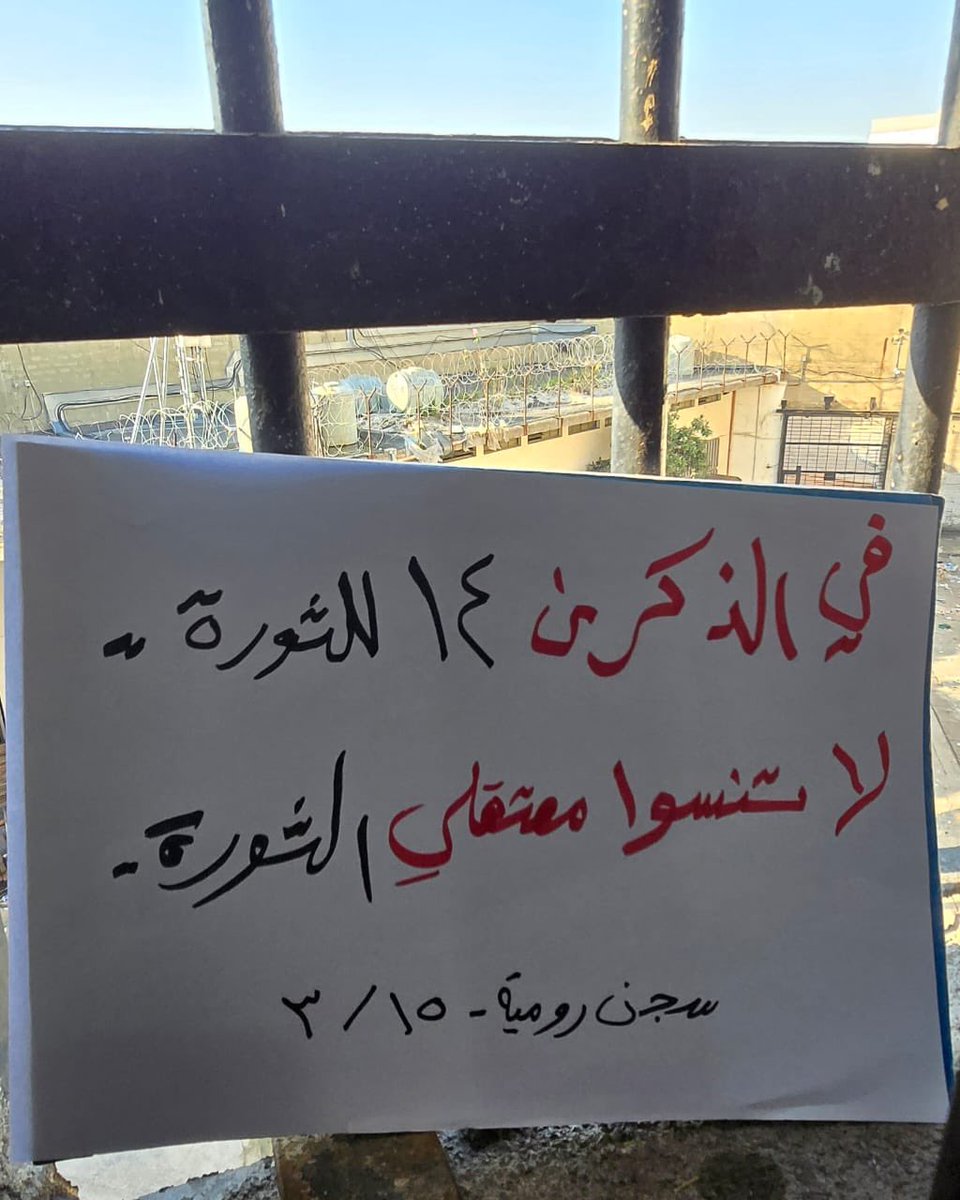 في الذكرى ١٤ للثورة ..
لا تنسوا معتقلي الثورة.
سجن رومية - ١٥ / ٣